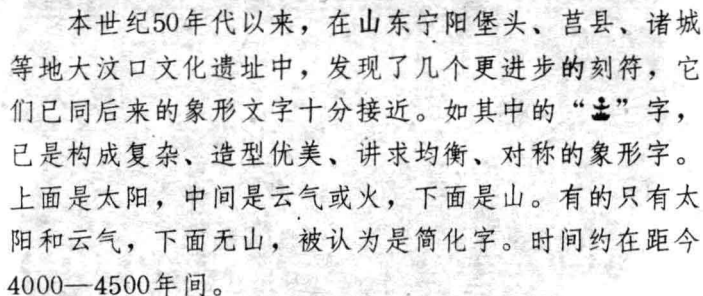 本世纪50年代以来，在山东宁阳堡头、莒县、诸城
等地大汶口文化遗址中，发现了几个更进步的刻符，它
们已同后来的象形文字十分接近。如其中的“”字，
已是构成复杂、造型优美、讲求均衡、对称的象形字。
上面是太阳，中间是云气或火，下面是山。有的只有太
阳和云气，下面无山，被认为是简化字。时间约在距今
4000—4500年间。